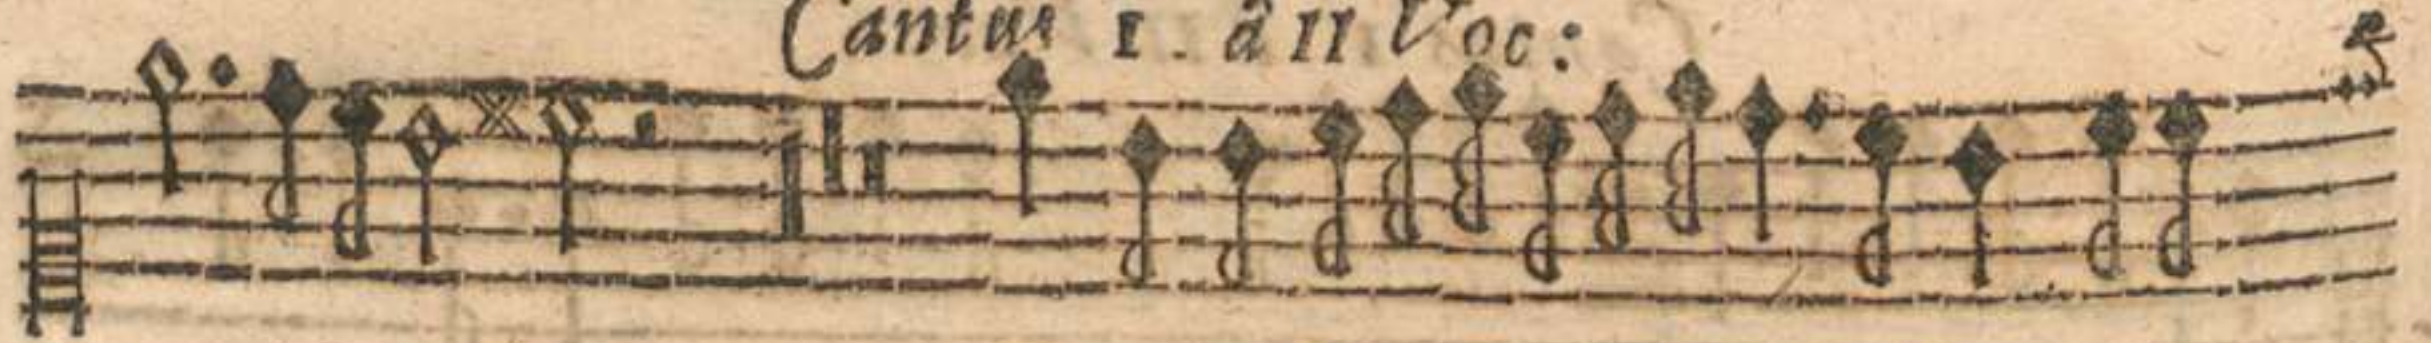 Cantus I. â II Voc: